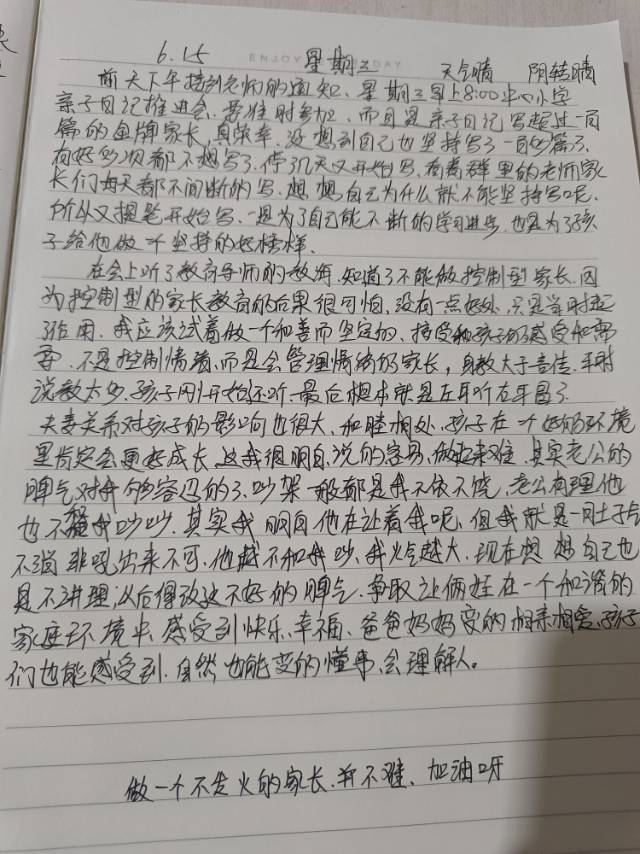 6.15 星期三 天气晴 阴转晴
ENJOY DAY
前天下午接到老师的通知、星期三早上8:00中心小学
亲子日记推进会、要准时参加、而且是亲子日记写超过一百
篇的金牌家长,真荣幸、没想到自己也坚持写了一百多篇了、
有好多次都不想写了、停了几天又开始写、看着群里的老师家
长们每天都不间断的写、想想自己为什么就不能坚持写呢、
所以又提笔开始写、一是为了自己能不断的学习进步、也是为了孩
子给他做一个坚持的好榜样、
在会上听了教育导师的教诲、知道了不能做控制型家长、因
为控制型的家长教育的后果很可怕、没有一点好处、只是当时起
了作用、我应该试着做一个和善而坚定的、接受和孩子的感受和需
要、不是控制情绪、而是会管理情绪的家长,身教大于言传、平时
说教太多、孩子刚开始还听、最后根本就是左耳听右耳冒了
夫妻关系对孩子的影响也很大、和睦相处、孩子在一个好的环境
里肯定会更好成长、这我很明白、说的容易、做起来难、其实老公的
脾气对我够容忍的了、吵架一般都是我不依不饶,老公有理他
也不跟我吵吵、其实我明白他在让着我呢、但我就是一肚子气
不消 非吼出来不可、他越不和我吵、我火气越大、现在想想自己也
是不讲理、以后得改这不好的脾气、争取让俩娃在一个和谐的
家庭环境中、感受到快乐、幸福、爸爸妈妈变的相亲相爱、孩子
们也能感受到、自然也能变的懂事、会理解人。
做一个不发火的家长、并不难、加油呀